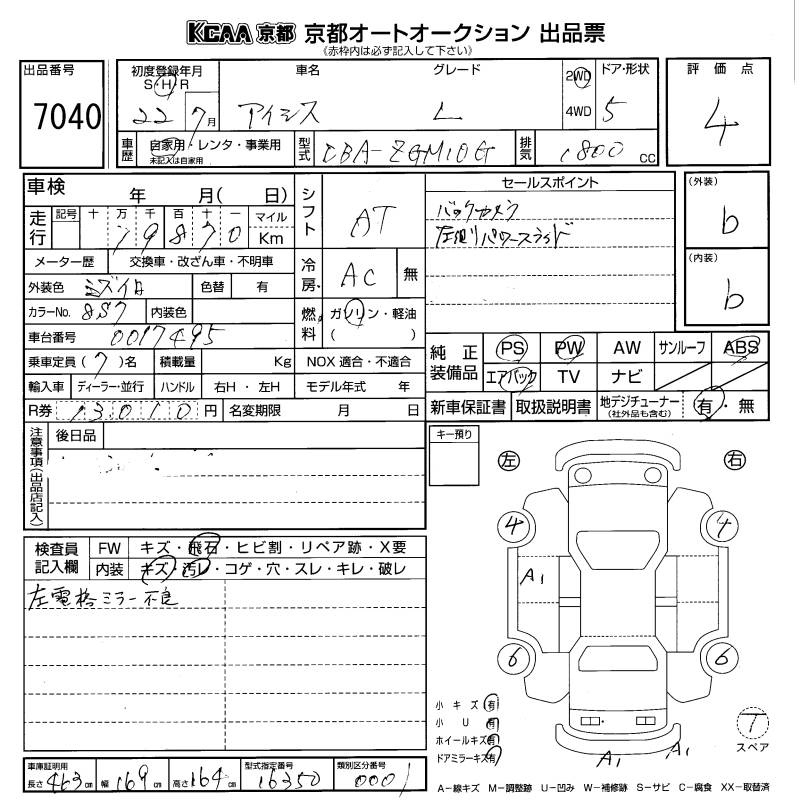 KCAA 京都 京都オートオークション 出品票
(赤枠内は必ず記入して下さい)
出品番号
7040
初度登録年月
S・H・R
22 7月
車名
アイシス
グレード
L
2WD
4WD
ドア・形状
5
評価点
4
車歴
自家用・レンタ・事業用
未記入は自家用
型式
DBA-ZGM10G
排気
1800 CC
車検
年 月( 日)
走行
記号 十 万 千 百 十 一 マイル
79870 Km
メーター歴 交換車・改ざん車・不明車
外装色 ミズイロ 色替 有
カラーNo. 8S7 内装色
車台番号 0017495
乗車定員(7)名 積載量 Kg
輸入車 ディーラー・並行 ハンドル 右H・左H
R券 13010円 名変期限 月 日
シフト
AT
冷房
AC 無
燃料
ガソリン・軽油
( )
NOX適合・不適合
モデル年式 年
セールスポイント
バックカメラ
左側パワースライド
(外装)
b
(内装)
b
純正装備品
PS PW AW サンルーフ ABS
エアバック TV ナビ
新車保証書 取扱説明書 地デジチューナー
(社外品も含む)
有・無
注意事項(出品店記入)
後日品
キー預り
左
右
4
4
A1
6
6
A1
A1
検査員記入欄
FW キズ・飛石・ヒビ割・リペア跡・X要
内装 キズ・汚レ・コゲ・穴・スレ・キレ・破レ
左電格ミラー不良
小キズ 有
小U 有
ホイールキズ 有
ドアミラーキズ 有
T
スペア
車庫証明用
長さ 463cm 幅 169cm 高さ 164cm
型式指定番号
16350
類別区分番号
0001
A-線キズ M-調整跡 U-凹み W-補修跡 S-サビ C-腐食 XX-取替済